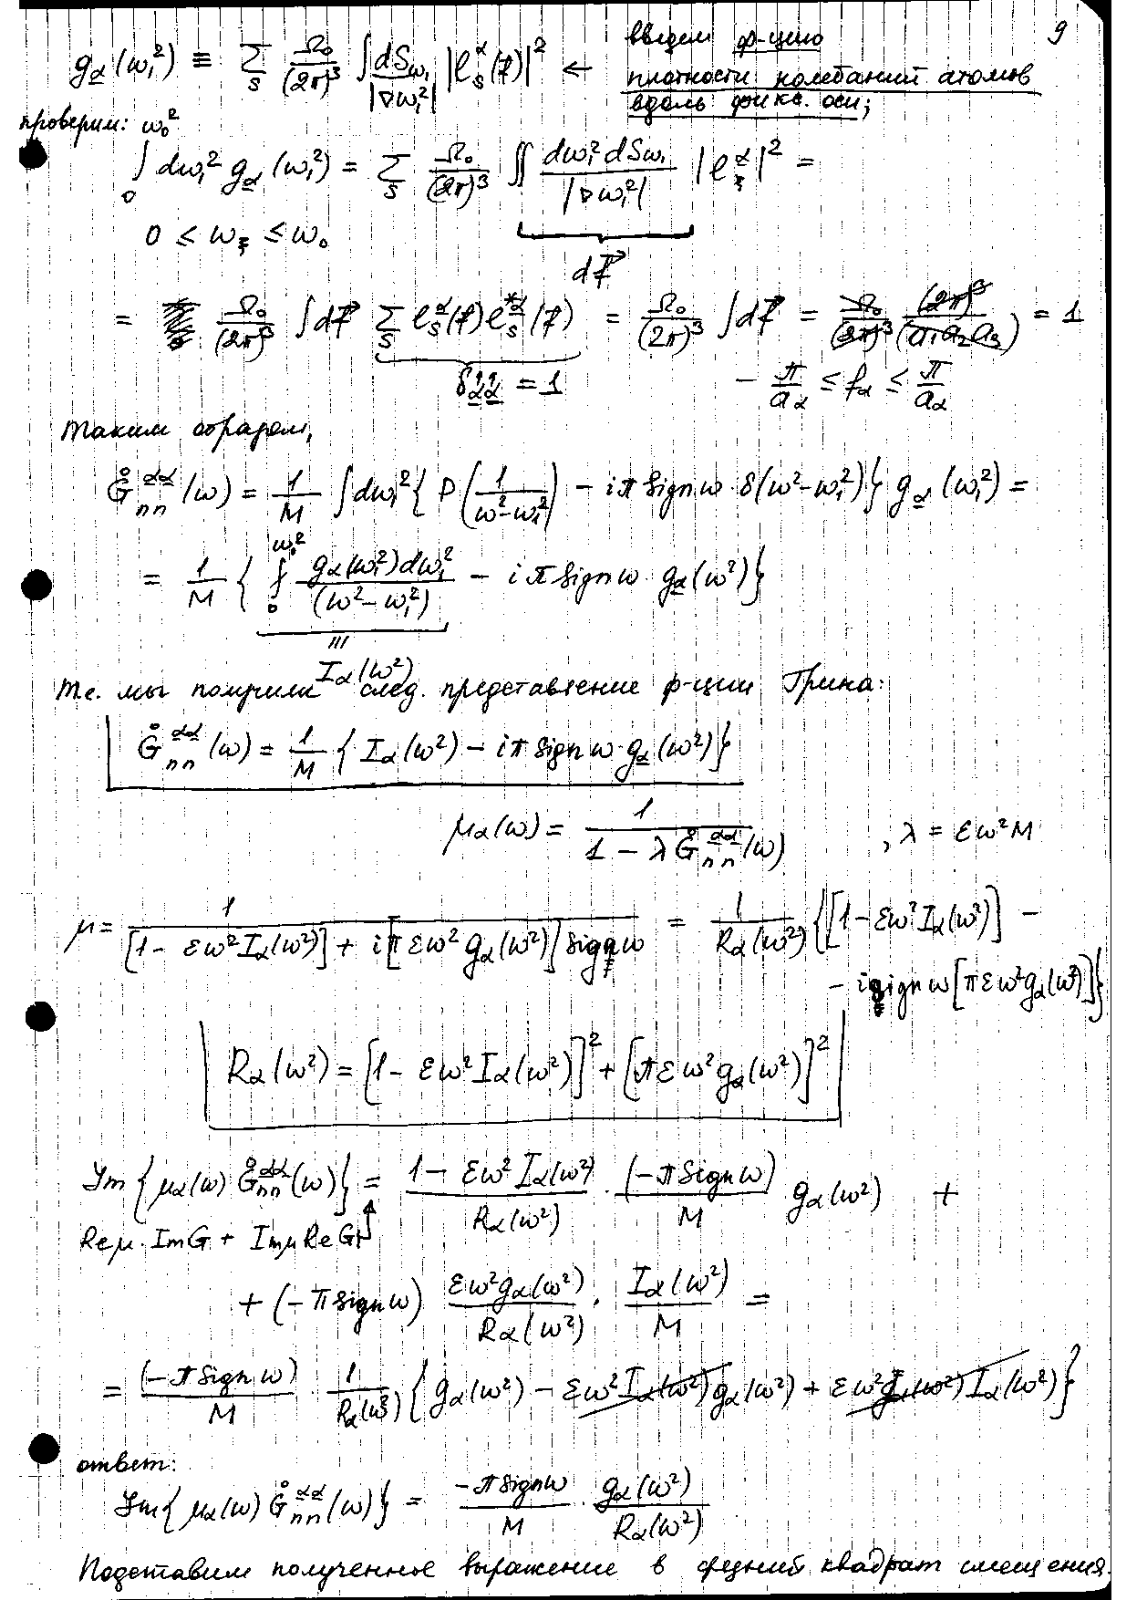 9
g_α(ω₁²) ≡ Σ_s Ω₀/(2π)³ ∫ dS_ω₁/|∇ω₁²| |e_s^α(f)|² ← введем ф-цию
плотности колебаний атомов
вдоль фикс. оси;
проверим:
∫₀^{ω₀²} dω₁² g_α(ω₁²) = Σ_s Ω₀/(2π)³ ∫∫ dω₁² dS_ω₁/|∇ω₁²| |e_ξ^α|² =
0 ≤ ω_ξ ≤ ω₀
df⃗
= Ω₀/(2π)³ ∫df⃗ Σ_s e_s^α(f) e_s^{*α}(f) = Ω₀/(2π)³ ∫df⃗ = Ω₀/(2π)³ (2π)³/(a₁a₂a₃) = 1
δ_αα = 1
− π/a_α ≤ f_α ≤ π/a_α
Таким образом,
G̊_nn^αα(ω) = 1/M ∫dω₁² { P(1/(ω²−ω₁²)) − iπ sign ω · δ(ω²−ω₁²)} g_α(ω₁²) =
= 1/M { ∫₀^{ω₀²} g_α(ω₁²)dω₁²/(ω²−ω₁²) − iπ sign ω · g_α(ω²)}
I_α(ω²)
Т.е. мы получили след. представление ф-ции Грина:
G̊_nn^αα(ω) = 1/M { I_α(ω²) − iπ sign ω · g_α(ω²)}
μ_α(ω) = 1/(1 − λ G̊_nn^αα(ω)) , λ = εω²M
μ = 1/([1 − εω² I_α(ω²)] + i[π εω² g_α(ω²)] sign ω) = 1/R_α(ω²) {[1 − εω² I_α(ω²)] −
− i sign ω [π εω² g_α(ω²)]}
R_α(ω²) = [1 − εω² I_α(ω²)]² + [π εω² g_α(ω²)]²
Im {μ_α(ω) G̊_nn^αα(ω)} = (1 − εω² I_α(ω²))/R_α(ω²) · (−π sign ω)/M g_α(ω²) +
Re μ · Im G + Im μ Re G
+ (−π sign ω) εω² g_α(ω²)/R_α(ω²) · I_α(ω²)/M =
= (−π sign ω)/M · 1/R_α(ω²) { g_α(ω²) − εω² I_α(ω²) g_α(ω²) + εω² g_α(ω²) I_α(ω²)}
ответ:
Im{μ_α(ω) G̊_nn^αα(ω)} = −π sign ω/M · g_α(ω²)/R_α(ω²)
Подставим полученное выражение в средний квадрат смещения.